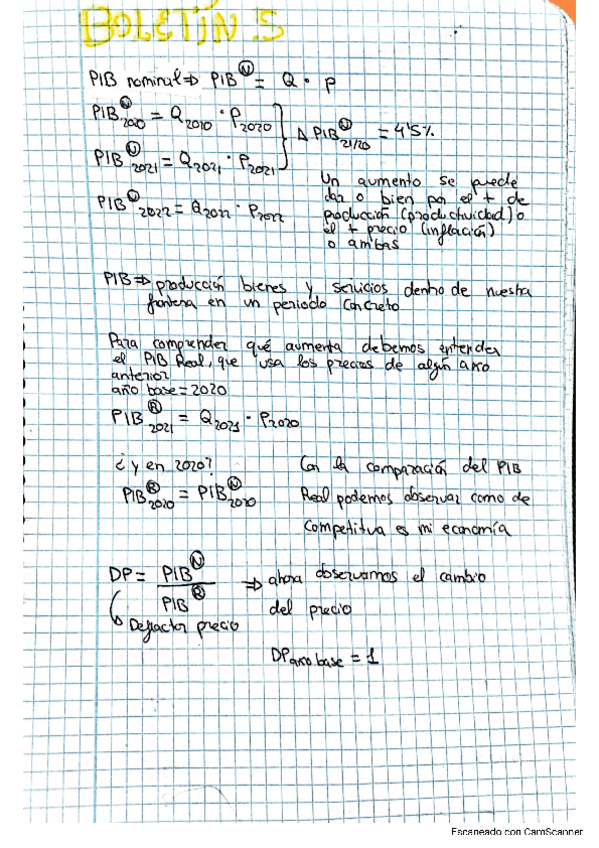 BOLETÍN 5
PIB nominal ⇒ PIB Ⓝ = Q · P
PIB Ⓝ 2020 = Q 2020 · P 2020
Δ PIB Ⓝ 21/20 = 4'5%
PIB Ⓝ 2021 = Q 2021 · P 2021
PIB Ⓝ 2022 = Q 2022 · P 2022
Un aumento se puede
dar o bien por el + de
producción (productividad) o
el + precio (inflación)
o ambas
PIB ⇒ producción bienes y servicios dentro de nuestra
frontera en un periodo concreto
Para comprender qué aumenta debemos entender
el PIB Real, que usa los precios de algún año
anterior
año base = 2020
PIB Ⓡ 2021 = Q 2021 · P 2020
¿y en 2020?
PIB Ⓡ 2020 = PIB Ⓝ 2020
Con la comparación del PIB
Real podemos observar como de
competitiva es mi economía
DP = PIB Ⓝ / PIB Ⓡ ⇒ ahora observamos el cambio
del precio
Deflactor precio
DP año base = 1
Escaneado con CamScanner